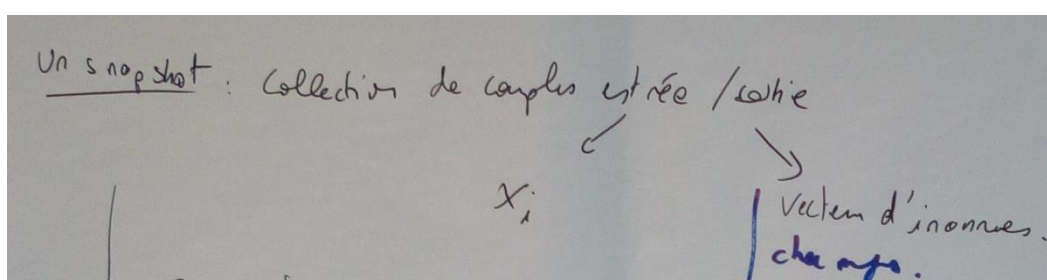 Un snapshot : Collection de couples entrée / sortie
Xi
Vecteur d'inconnues.
champs.